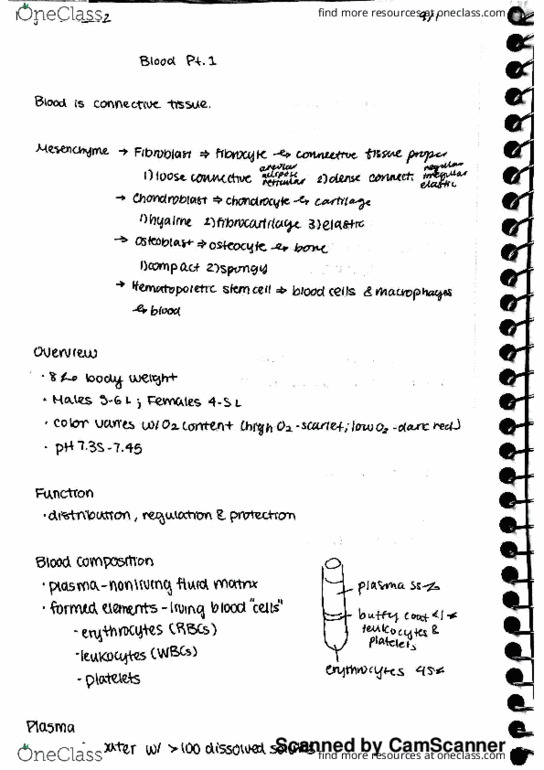 OneClass
find more resources at oneclass.com
4/1
Blood Pt.1
Blood is connective tissue.
Mesenchyme → Fibroblast ⇒ fibrocyte ↪ connective tissue proper
1) loose connective areolar adipose reticular 2) dense connect. regular irregular elastic
→ Chondroblast ⇒ chondrocyte ↪ cartilage
1) hyaline 2) fibrocartilage 3) elastic
→ Osteoblast ⇒ osteocyte ↪ bone
1) compact 2) spongy
→ Hematopoietic stem cell ⇒ blood cells & macrophages
↪ blood
Overview
· 8% body weight
· Males 5-6 L ; Females 4-5 L
· color varies w/ O2 content (high O2 - scarlet; low O2 - dark red)
· pH 7.35-7.45
Function
· distribution, regulation & protection
Blood composition
· plasma - nonliving fluid matrix
· formed elements - living blood "cells"
- erythrocytes (RBCs)
- leukocytes (WBCs)
- platelets
plasma 55%
buffy coat <1%
leukocytes &
platelets
erythrocytes 45%
Plasma
w/ >100 dissolved
Scanned by CamScanner
OneClass
find more resources at oneclass.com